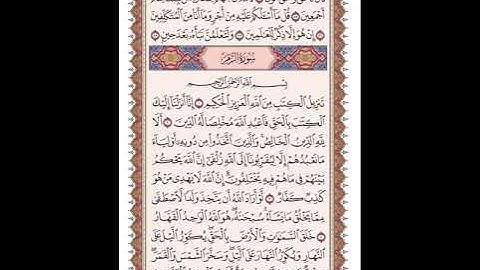 أَجْمَعِينَ ۝ قُلْ مَا أَسْأَلُكُمْ عَلَيْهِ مِنْ أَجْرٍ وَمَا أَنَا مِنَ الْمُتَكَلِّفِينَ
۝ إِنْ هُوَ إِلَّا ذِكْرٌ لِلْعَالَمِينَ ۝ وَلَتَعْلَمُنَّ نَبَأَهُ بَعْدَ حِينٍ ۝
سُورَةُ الزُّمَرِ
بِسْمِ اللَّهِ الرَّحْمَٰنِ الرَّحِيمِ
تَنْزِيلُ الْكِتَٰبِ مِنَ اللَّهِ الْعَزِيزِ الْحَكِيمِ ۝ إِنَّا أَنْزَلْنَا إِلَيْكَ
الْكِتَٰبَ بِالْحَقِّ فَاعْبُدِ اللَّهَ مُخْلِصًا لَهُ الدِّينَ ۝ أَلَا
لِلَّهِ الدِّينُ الْخَالِصُ وَالَّذِينَ اتَّخَذُوا مِنْ دُونِهِ أَوْلِيَاءَ
مَا نَعْبُدُهُمْ إِلَّا لِيُقَرِّبُونَا إِلَى اللَّهِ زُلْفَىٰ إِنَّ اللَّهَ يَحْكُمُ
بَيْنَهُمْ فِي مَا هُمْ فِيهِ يَخْتَلِفُونَ إِنَّ اللَّهَ لَا يَهْدِي مَنْ هُوَ
كَٰذِبٌ كَفَّارٌ ۝ لَوْ أَرَادَ اللَّهُ أَنْ يَتَّخِذَ وَلَدًا لَاصْطَفَىٰ
مِمَّا يَخْلُقُ مَا يَشَاءُ سُبْحَٰنَهُ هُوَ اللَّهُ الْوَٰحِدُ الْقَهَّارُ
۝ خَلَقَ السَّمَٰوَٰتِ وَالْأَرْضَ بِالْحَقِّ يُكَوِّرُ اللَّيْلَ عَلَى
النَّهَارِ وَيُكَوِّرُ النَّهَارَ عَلَى اللَّيْلِ وَسَخَّرَ الشَّمْسَ وَالْقَمَرَ